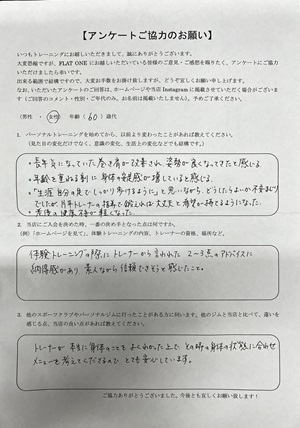 【アンケートご協力のお願い】
いつもトレーニングにお越しいただきまして、誠にありがとうございます。
大変恐縮ですが、FLAT ONE にお越しいただいている皆様のご意見・ご感想を賜りたく、アンケートにご協力
いただけましたら幸いです。
出来る範囲で結構ですので、大変お手数をお掛け致しますが、どうぞ宜しくお願い申し上げます。
なお、いただいたアンケートのご回答は、ホームページや当店 Instagram に掲載させていただく場合がございま
す（ご回答のコメント・性別・ご年代のみ。お名前は掲載いたしません）。予めご了承ください。
（男性 ・ 女性 年齢（ 60 ）歳代
1. パーソナルトレーニングを始めてから、以前より変わったことがあれば教えてください。
（見た目の変化だけでなく、意識の変化、生活上の変化などでも結構です）
・長年気になっていた巻き肩が改善され、姿勢が良くなってきたと感じる。
・年齢を重ねる割に身体の柔軟性が増していると感じる。
・"生涯自分の足でしっかり歩けるように"と思いながら、どうしたらよいか不安だらけ
でしたが、トレーナーの指導で始んは大丈夫と希望が持てるようになった。
・老後の健康不安が軽くなった。
2. 当店にご入会を決めた時、一番の決め手となった点は何ですか。
（例）「ホームページを見て」、体験トレーニングの内容、トレーナーの資格、場所など。
体験トレーニングの際にトレーナーから言われた 2〜3点のアドバイスに
納得感があり、素人ながら信頼できそうと感じたこと。
3. 他のスポーツクラブやパーソナルジムに行ったことがある方に伺います。他のジムと当店と比べて、違いを
感じる点、当店の良い点があれば教えてください。
トレーナーが本当に身体のことをよくわかった上で、その時の身体の状態に合わせ
メニューを考えてくださるので とても安心しています。
ご協力ありがとうございました。今後とも宜しくお願い致します！